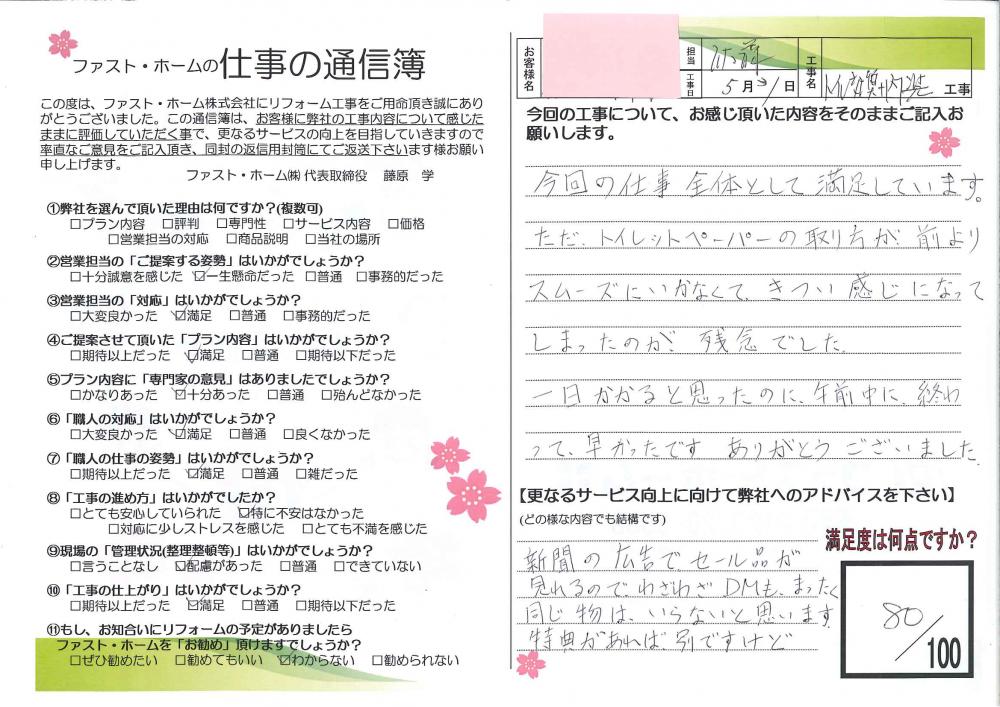 ファスト・ホームの仕事の通信簿
この度は、ファスト・ホーム株式会社にリフォーム工事をご用命頂き誠にあり
がとうございました。この通信簿は、お客様に弊社の工事内容について感じた
ままに評価していただく事で、更なるサービスの向上を目指していきますので
率直なご意見をご記入頂き、同封の返信用封筒にてご返送下さいます様お願い
申し上げます。
ファスト・ホーム㈱ 代表取締役 藤原 学
①弊社を選んで頂いた理由は何ですか?(複数可)
□プラン内容 □評判 □専門性 □サービス内容 □価格
□営業担当の対応 □商品説明 □当社の場所
②営業担当の「ご提案する姿勢」はいかがでしょうか?
□十分誠意を感じた ☑一生懸命だった □普通 □事務的だった
③営業担当の「対応」はいかがでしょうか?
□大変良かった ☑満足 □普通 □事務的だった
④ご提案させて頂いた「プラン内容」はいかがでしょうか?
□期待以上だった ☑満足 □普通 □期待以下だった
⑤プラン内容に「専門家の意見」はありましたでしょうか?
□かなりあった ☑十分あった □普通 □殆んどなかった
⑥「職人の対応」はいかがでしょうか?
□大変良かった ☑満足 □普通 □良くなかった
⑦「職人の仕事の姿勢」はいかがでしょうか?
□期待以上だった ☑満足 □普通 □雑だった
⑧「工事の進め方」はいかがでしたか?
□とても安心していられた ☑特に不安はなかった
□対応に少しストレスを感じた □とても不満を感じた
⑨現場の「管理状況(整理整頓等)」はいかがでしょうか?
□言うことなし ☑配慮があった □普通 □できていない
⑩「工事の仕上がり」はいかがでしょうか?
□期待以上だった ☑満足 □普通 □期待以下だった
⑪もし、お知合いにリフォームの予定がありましたら
ファスト・ホームを「お勧め」頂けますでしょうか?
□ぜひ勧めたい □勧めてもいい ☑わからない □勧められない
お客様名
担当
工事日 5月31日
工事名 工事
今回の工事について、お感じ頂いた内容をそのままご記入お
願いします。
今回の仕事 全体として 満足しています。
ただ、トイレットペーパーの取り方が 前より
スムーズにいかなくて、きつい感じになって
しまったのが、残念でした。
一日かかると思ったのに、午前中に、終わ
って、早かったです ありがとうございました。
【更なるサービス向上に向けて弊社へのアドバイスを下さい】
(どの様な内容でも結構です)
新聞の広告でセール品が
見れるので、わざわざDMも、まったく
同じ物は、いらないと思います。
特典があれば、別ですけど
満足度は何点ですか?
80/100